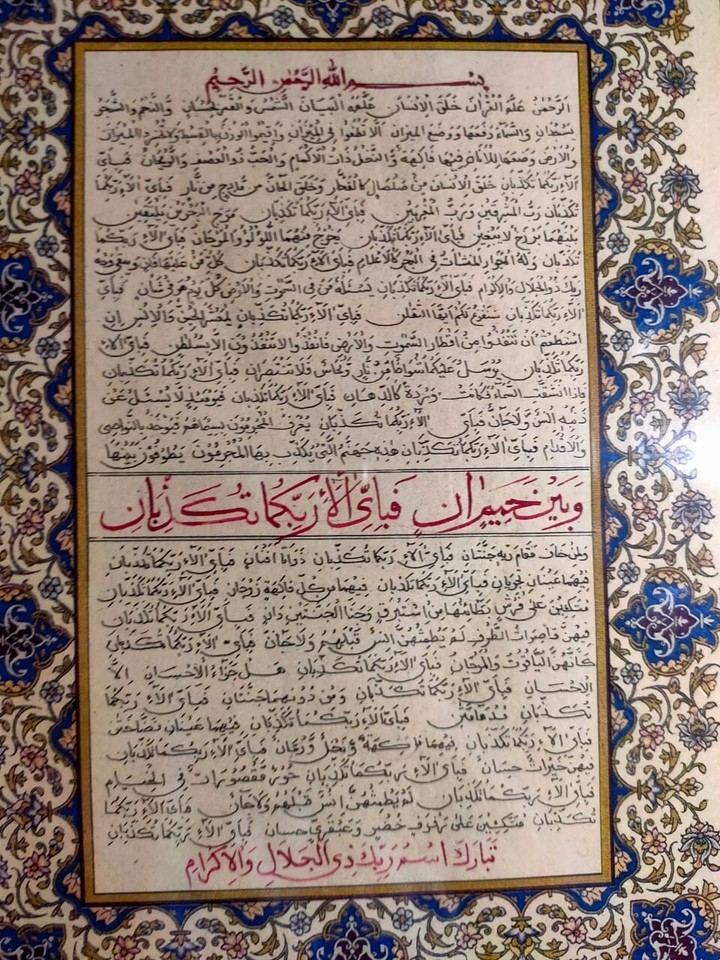 بسم الله الرحمن الرحيم
الرحمن علم القرآن خلق الانسان علمه البيان الشمس والقمر بحسبان والنجم والشجر
يسجدان والسماء رفعها ووضع الميزان الا تطغوا في الميزان واقيموا الوزن بالقسط ولا تخسروا الميزان
والارض وضعها للانام فيها فاكهة والنخل ذات الاكمام والحب ذو العصف والريحان فباى
آلاء ربكما تكذبان خلق الانسان من صلصال كالفخار وخلق الجان من مارج من نار فباى آلاء ربكما
تكذبان رب المشرقين ورب المغربين فباى آلاء ربكما تكذبان مرج البحرين يلتقيان
بينهما برزخ لا يبغيان فباى آلاء ربكما تكذبان يخرج منهما اللؤلؤ والمرجان فباى آلاء ربكما
تكذبان وله الجوار المنشآت فى البحر كالاعلام فباى آلاء ربكما تكذبان كل من عليها فان ويبقى وجه
ربك ذو الجلال والاكرام فباى آلاء ربكما تكذبان يسئله من فى السموت والارض كل يوم هو فى شأن فباى
آلاء ربكما تكذبان سنفرغ لكم ايها الثقلن فباى آلاء ربكما تكذبان يمعشر الجن والانس ان
استطعتم ان تنفذوا من اقطار السموت والارض فانفذوا لا تنفذون الا بسلطن فباى آلاء
ربكما تكذبان يرسل عليكما شواظ من نار ونحاس فلا تنتصران فباى آلاء ربكما تكذبان
فاذا انشقت السماء فكانت وردة كالدهان فباى آلاء ربكما تكذبان فيومئذ لا يسئل عن
ذنبه انس ولا جان فباى آلاء ربكما تكذبان يعرف المجرمون بسيماهم فيؤخذ بالنواصى
والاقدام فباى آلاء ربكما تكذبان هذه جهنم التى يكذب بها المجرمون يطوفون بينها
وبين حميم ان فباى آلاء ربكما تكذبان
ولمن خاف مقام ربه جنتان فباى آلاء ربكما تكذبان ذواتا افنان فباى آلاء ربكما تكذبان
فيهما عينان تجريان فباى آلاء ربكما تكذبان فيهما من كل فاكهة زوجان فباى آلاء ربكما تكذبان
متكئين على فرش بطائنها من استبرق وجنا الجنتين دان فباى آلاء ربكما تكذبان
فيهن قاصرات الطرف لم يطمثهن انس قبلهم ولا جان فباى آلاء ربكما تكذبان
كانهن الياقوت والمرجان فباى آلاء ربكما تكذبان هل جزاء الاحسان الا
الاحسان فباى آلاء ربكما تكذبان ومن دونهما جنتان فباى آلاء ربكما
تكذبان مدهامتان فباى آلاء ربكما تكذبان فيهما عينان نضاختان
فباى آلاء ربكما تكذبان فيهما فاكهة ونخل ورمان فباى آلاء ربكما تكذبان
فيهن خيرات حسان فباى آلاء ربكما تكذبان حور مقصورات فى الخيام
فباى آلاء ربكما تكذبان لم يطمثهن انس قبلهم ولا جان فباى آلاء ربكما
تكذبان متكئين على رفرف خضر وعبقرى حسان فباى آلاء ربكما تكذبان
تبارك اسم ربك ذى الجلال والاكرام